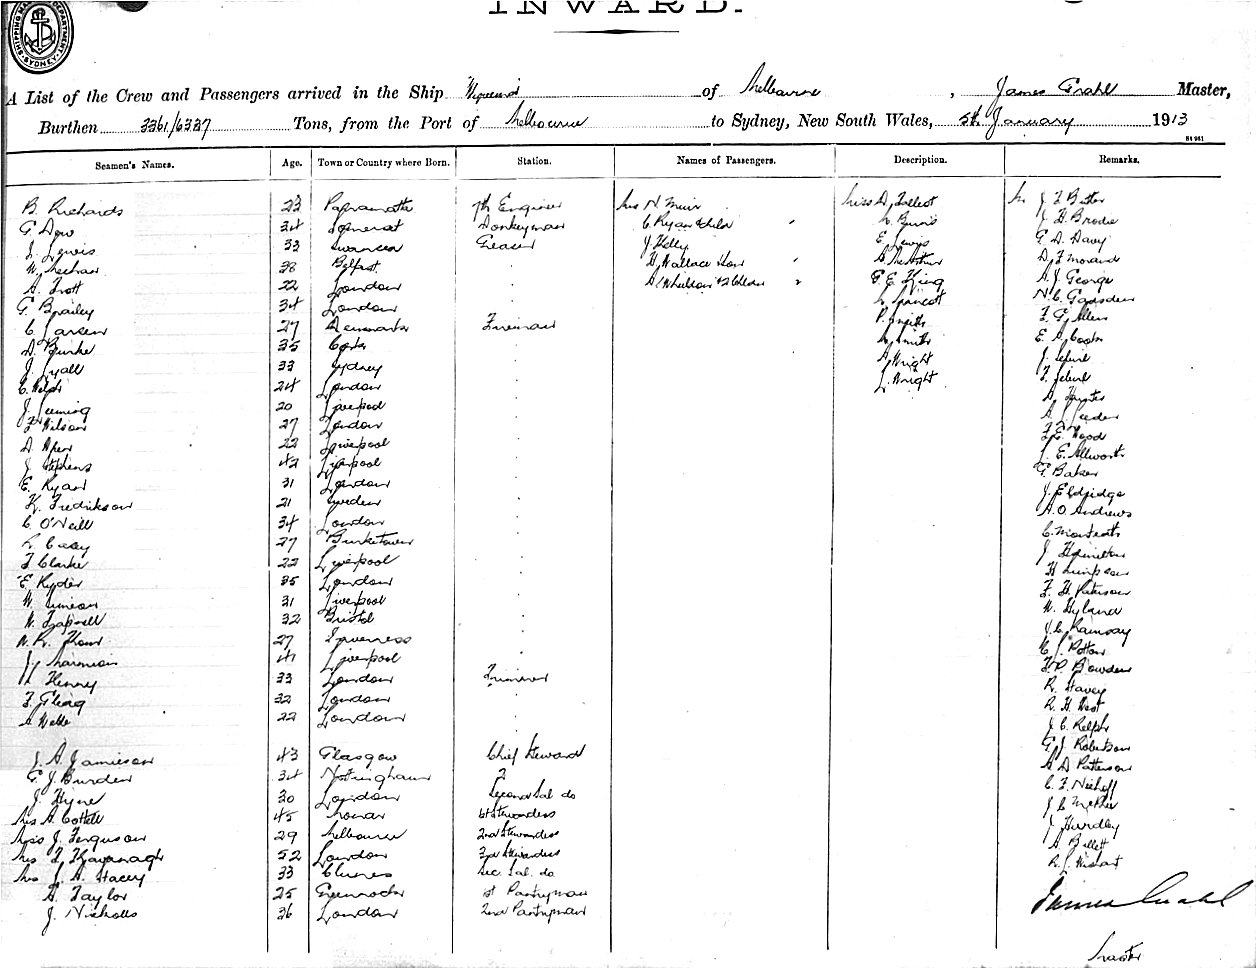 INWARD.
SHIPPING MA DEPARTMENT SYDNEY
A List of the Crew and Passengers arrived in the Ship of Melbourne, James Grahl Master,
Burthen 3361/6337 Tons, from the Port of Melbourne to Sydney, New South Wales, 5th January 1913
Seamen's Names. Age. Town or Country where Born. Station. Names of Passengers. Description. Remarks.
B. Richards 23 Parramatta 7th Engineer
G. Dow 34 Somerset Donkeyman
J. Lewis 33 Swansea Greaser
W. Meehan 38 Belfast
A. Trott 22 London
G. Brailey 34 London
C. Larsen 27 Denmark Fireman
D. Burke 35 Cork
J. Lyall 33 Sydney
C. Welph 24 London
J. Leeming 20 Liverpool
F. Wilson 27 London
D. 22 Liverpool
J. Stephens 42 Liverpool
E. Ryan 31 London
K. Fredrikson 21 Sweden
C. O'Neill 34 London
R. Casey 27 Burketown
F. Clarke 22 Liverpool
E. Ryder 35 London
W. 31 Liverpool
W. Trapnell 32 Bristol
W. R. Thom 27 Inverness
J. 41 Liverpool
Henry 33 London Trimmer
F. Flegg 32 London
A. Webb 22 London
J. A. Jamieson 43 Glasgow Chief Steward
G. J. Burden 34 Nottingham 2
J. Hyne 30 London Second Sal. do
Mrs A. Cottell 45 1st Stewardess
Miss J. Ferguson 29 Melbourne 2nd Stewardess
Mrs F. Kavanagh 52 London 3rd Stewardess
Mrs J. A. Stacey 33 Clunes Sec. Sal. do
A. Taylor 25 Greenock 1st Pantryman
J. Nicholls 36 London 2nd Pantryman
Mrs N. Muir
C. Ryan & Child
J. Kelly
H. Wallace
A. Wheildon & 2 Children
Miss D. Tallent
Burns
E. Lewis
A. McArthur
G. E. King
P. Smith
Smith
A. Wright
L. Wright
Mr J. F. Butler
J. H. Brodie
G. D. Davy
D. F. Morand
A. J. George
N. C. Gadsden
F. G. Allen
E. A. Cook
J.
F.
A. Hunter
A. J. Leeder
F. E. Wood
J. E. Allworth
G. Baker
J. Eldridge
A. O. Andrews
C.
J. Hamilton
H. Simpson
F. H. Paterson
W. Hyland
J. C. Ramsay
C. J. Potton
F. P. Bowden
R. Havey
R. H. West
J. C. Relph
G. J. Robertson
A. D. Patterson
C. F. Niehoff
J. C. McKee
J. Hurdley
A. Billett
R. J. Wishart
James Grahl
Master